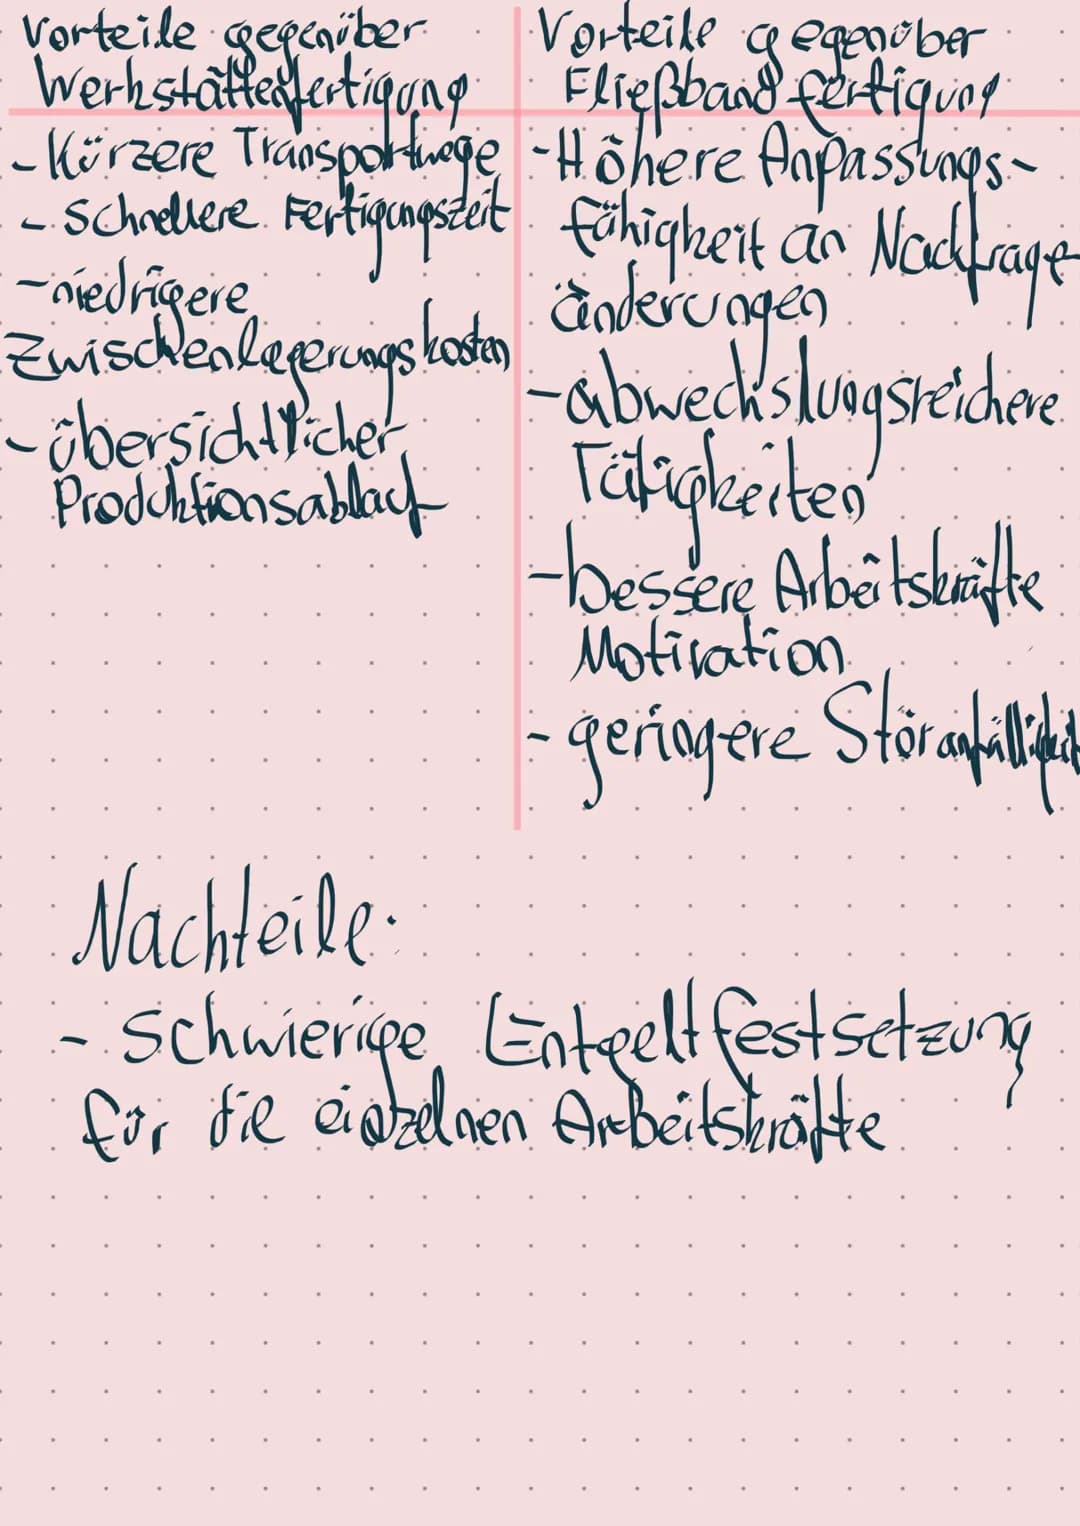 Vorteile gegenüber
Werkstättenfertigung
- Kürzere Transportwege
- Schnellere Fertigungszeit
- niedrigere
Zwischenlagerungskosten
- übersichtlicher
Produktionsablauf
Vorteile gegenüber
Fließbandfertigung
- Höhere Anpassungs-
fähigkeit an Nachfrage
änderungen
- abwechslungsreichere
Tätigkeiten
- bessere Arbeitskräfte
Motivation
- geringere Störanfälligkeit
Nachteile:
- Schwierige Entgeltfestsetzung
für die einzelnen Arbeitskräfte